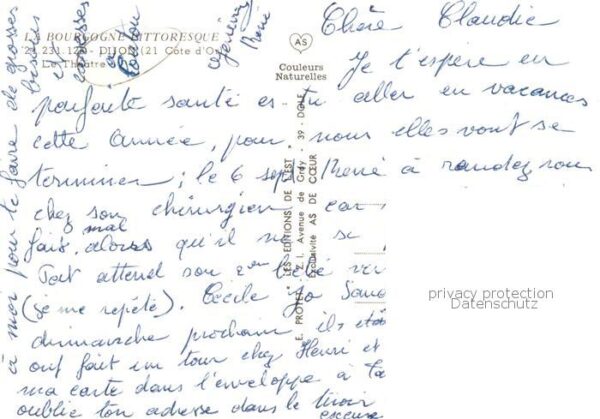 LA BOURGOGNE PITTORESQUE
DIJON (21 Côte d'Or)
Le Théâtre
AS
Couleurs
Naturelles
Chère Claudie
Je t'espère en
parfaite santé es-tu aller en vacances
cette année, pour nous elles vont se
terminer; le 6 sept René à rendez vous
chez son chirurgien car
mal
fait. alors qu'il
Tait attend son 2em bébé
(je me repète). Cécile
dimanche prochain ils
ont fait un tour chez Henri et
ma carte dans l'enveloppe à
oublie ton adresse dans le tiroir
excuse
à moi pour te faire de grosses
bises
et
caresses
à
Loulou
René
"LES EDITIONS DE L'EST"
E. PROTET - Z.I. Avenue de Gray - 39 - DOLE
Exclusivité AS DE CŒUR
privacy protection
Datenschutz